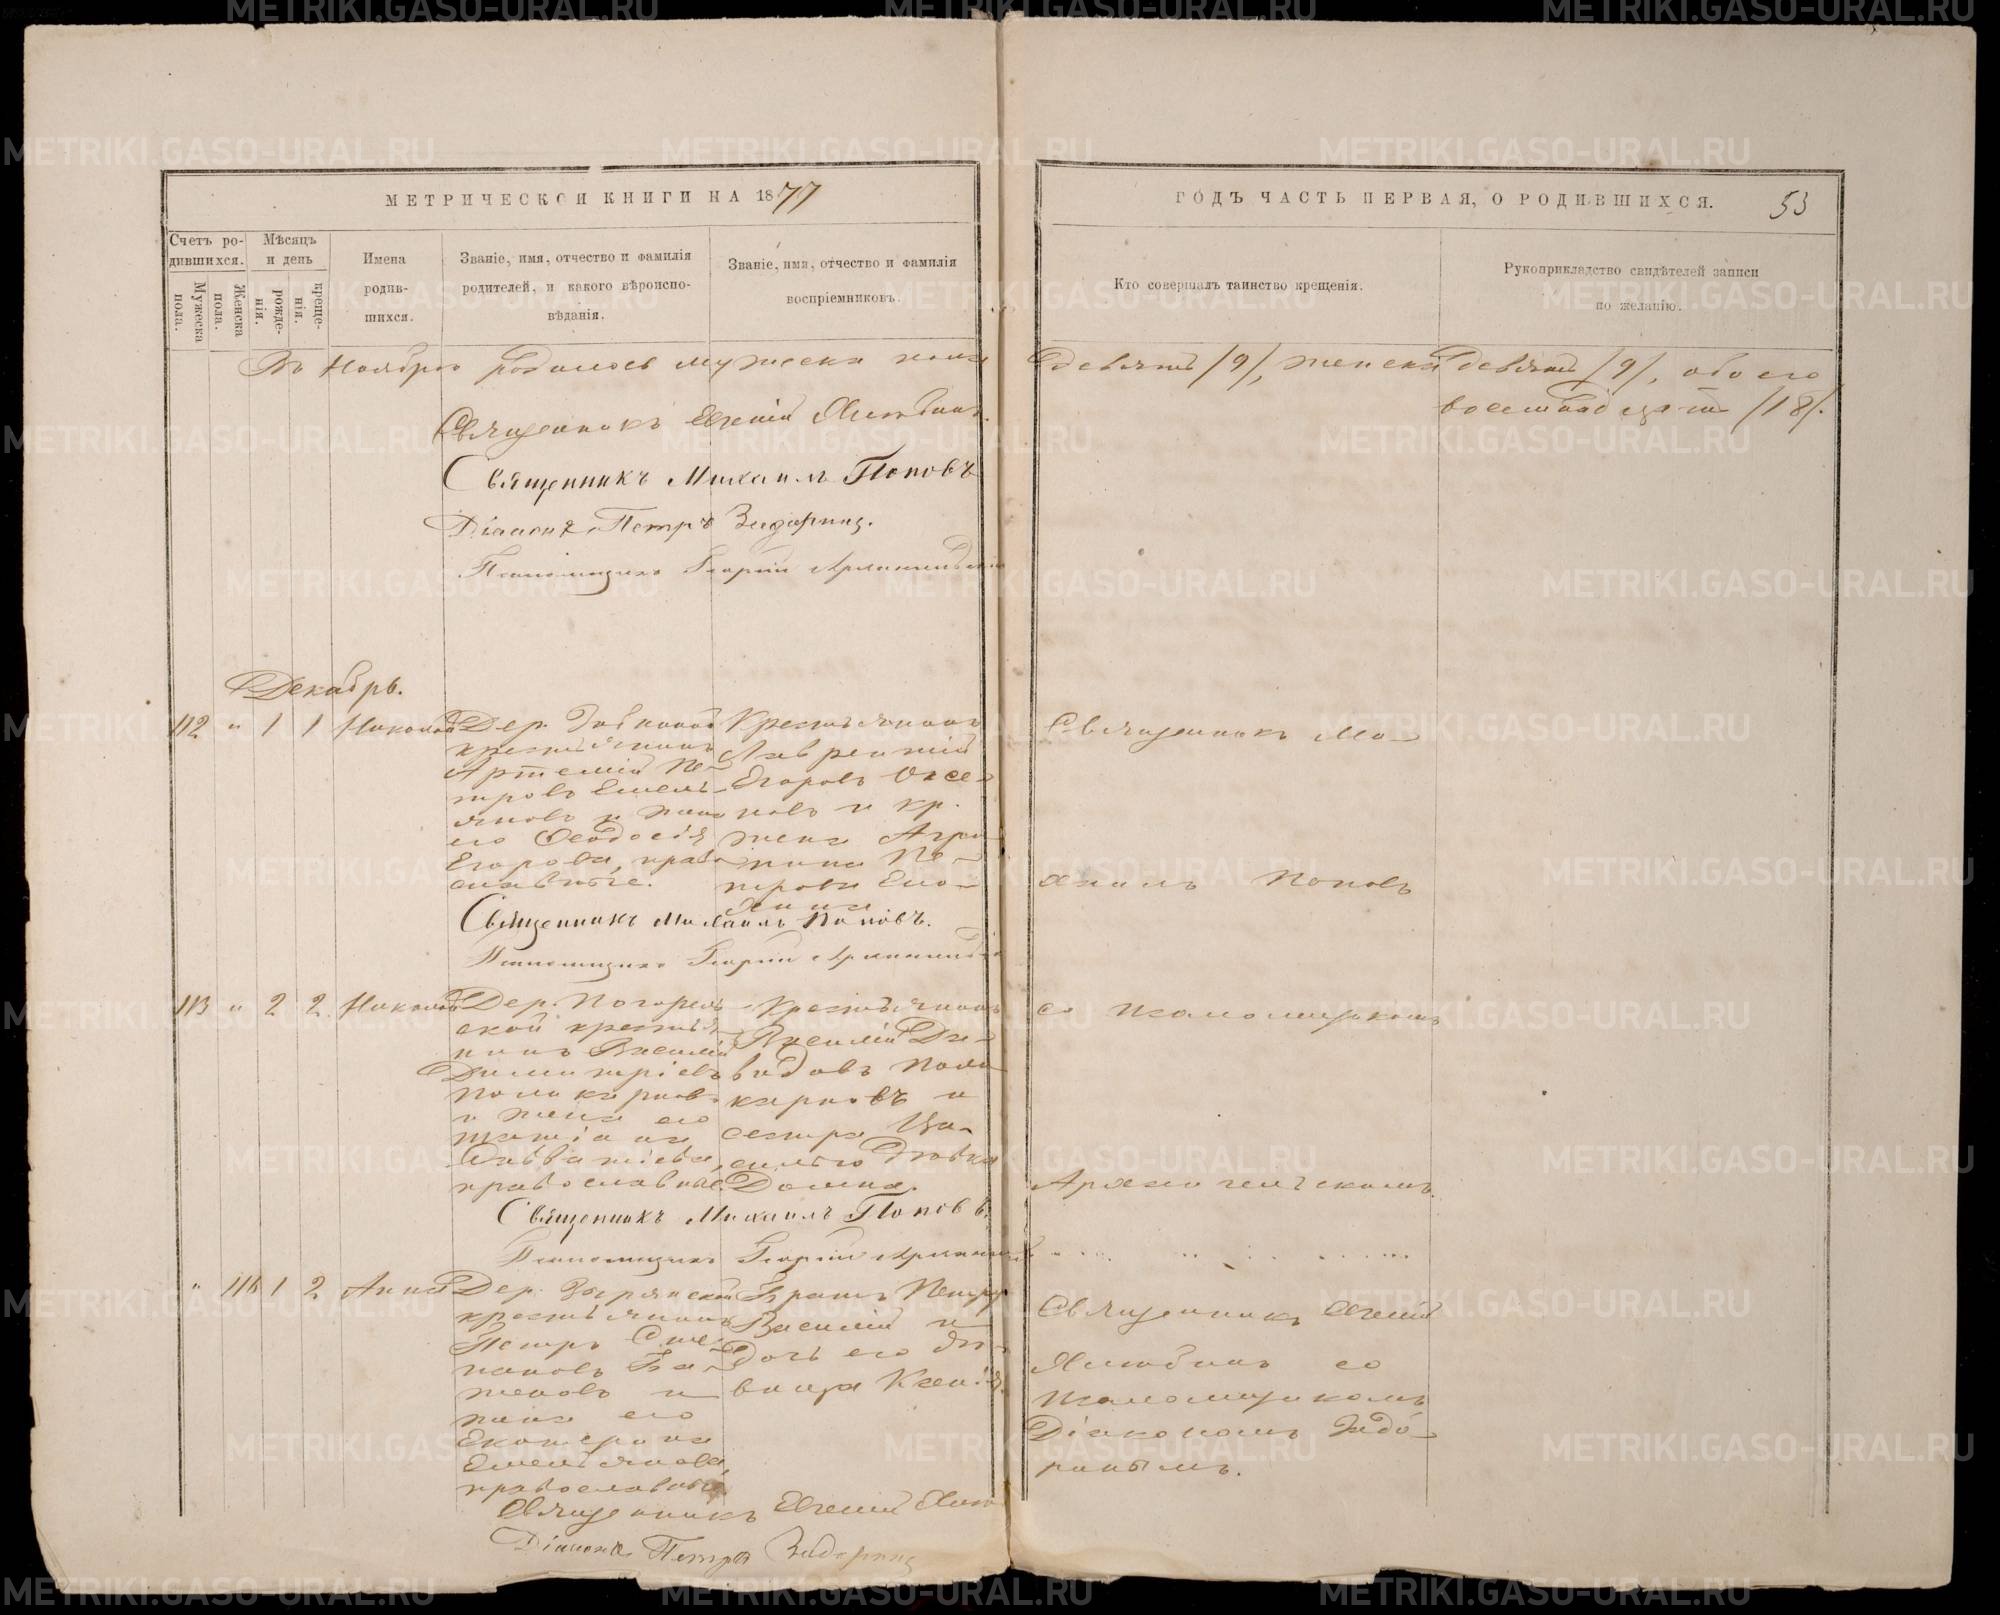 МЕТРИЧЕСКОЙ КНИГИ НА 1877
ГОДЪ ЧАСТЬ ПЕРВАЯ, О РОДИВШИХСЯ. 53
Счетъ ро-
дившихся.
Мужеска
пола.
Женска
пола.
Мѣсяцъ
и день
рожде-
нія.
креще-
нія.
Имена
родив-
шихся.
Званіе, имя, отчество и фамилія
родителей, и какого вѣроиспо-
вѣданія.
Званіе, имя, отчество и фамилія
воспріемниковъ.
Кто совершалъ таинство крещенія.
Рукоприкладство свидѣтелей записи
по желанію.
Въ Ноябрѣ родилось мужеска пола девять /9/, женска девять /9/, обоего
восемнадцать /18/.
Священникъ Евгеній
Священникъ Михаилъ Поповъ
Діаконъ Петръ
Псаломщикъ Георгій
Декабрь.
112 " 1 1 Николай
Дер.
крестьянинъ
Артемій Пе-
тровъ Емель-
яновъ и жена
его Ѳеодосія
Егорова, право-
славные.
Крестьянинъ
Лаврентій
Егоровъ
новъ и кр.
жена Агри-
пина Пе-
трова
Священникъ Ми-
хаилъ Поповъ
Священникъ Михаилъ Поповъ.
Псаломщикъ Георгій
113 " 2 2 Николай
Дер. Погорѣль-
ской крестья-
нинъ Василій
Димитріевъ
Поликарповъ
и жена его
Савватіева,
православные.
Крестьянинъ
Василій Да-
видовъ Поли-
карповъ и
сестра Ва-
силью дѣвка
Домна.
съ псаломщикомъ
Архангельскимъ.
Священникъ Михаилъ Поповъ.
Псаломщикъ Георгій
" 116 1 2 Анна
Дер. Зырянской
крестьянинъ
Петръ Сте-
пановъ Ба-
женовъ и
жена его
Екатерина
Емельянова,
православные
Братъ Петру
Василій и
дочь его дѣ-
вица Ксенія.
Священникъ Евгеній
со
псаломщикомъ
Діакономъ
Священникъ Евгеній
Діаконъ Петръ
METRIKI.GASO-URAL.RU